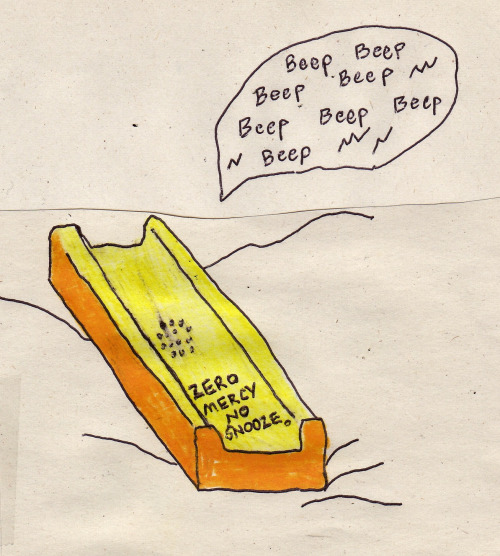 Beep Beep
Beep Beep
Beep Beep Beep
Beep
ZERO
MERCY
NO
SNOOZE.